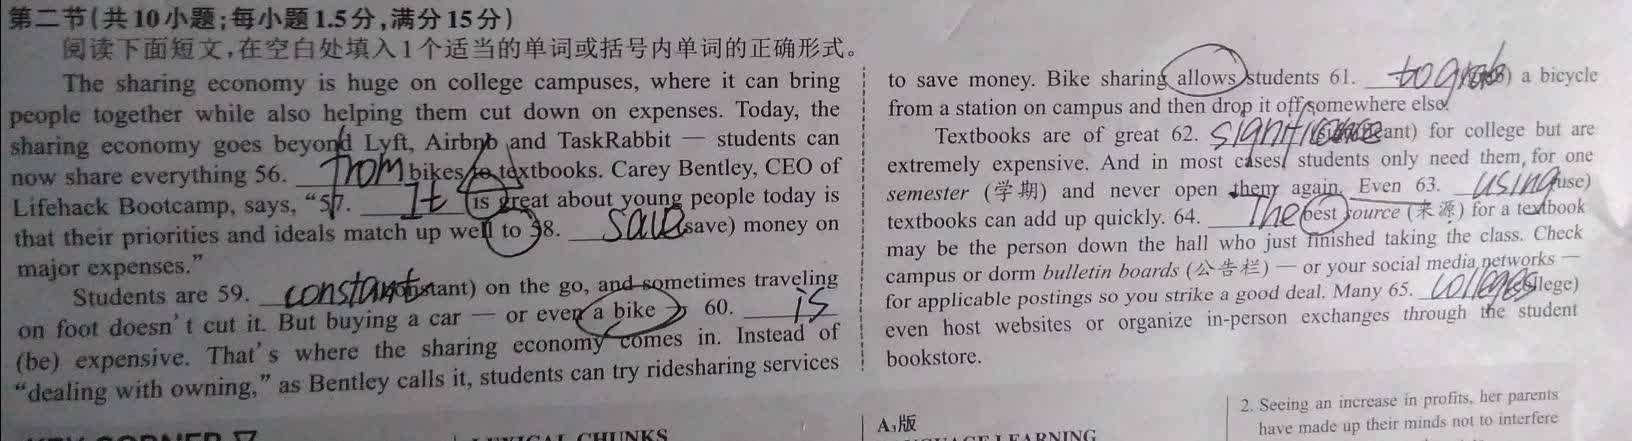 第二节(共10小题;每小题1.5分,满分15分)
阅读下面短文,在空白处填入1个适当的单词或括号内单词的正确形式。
The sharing economy is huge on college campuses, where it can bring
people together while also helping them cut down on expenses. Today, the
sharing economy goes beyond Lyft, Airbnb and TaskRabbit — students can
now share everything 56. from bikes to textbooks. Carey Bentley, CEO of
Lifehack Bootcamp, says, “57. It is great about young people today is
that their priorities and ideals match up well to 58. save (save) money on
major expenses.”
Students are 59. constant) on the go, and sometimes traveling
on foot doesn't cut it. But buying a car — or even a bike — 60. is
(be) expensive. That's where the sharing economy comes in. Instead of
“dealing with owning,” as Bentley calls it, students can try ridesharing services
to save money. Bike sharing allows students 61. to grab) a bicycle
from a station on campus and then drop it off somewhere else.
Textbooks are of great 62. significant) for college but are
extremely expensive. And in most cases, students only need them for one
semester (学期) and never open them again. Even 63. using use)
textbooks can add up quickly. 64. The best source (来源) for a textbook
may be the person down the hall who just finished taking the class. Check
campus or dorm bulletin boards (公告栏) — or your social media networks —
for applicable postings so you strike a good deal. Many 65. colleges college)
even host websites or organize in-person exchanges through the student
bookstore.
KEY CORNER
LEXICAL CHUNKS
A₁版
LANGUAGE LEARNING
2. Seeing an increase in profits, her parents
have made up their minds not to interfere